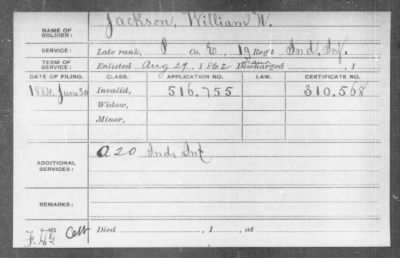 NAME OF SOLDIER: Jackson, William W.
SERVICE: Late rank, P Co. E, 19 Reg't Ind. Inf.
TERM OF SERVICE: Enlisted Aug 29, 1862 Discharged , 1
DATE OF FILING. CLASS. APPLICATION NO. LAW. CERTIFICATE NO.
1884 June 30 Invalid, 516.755 310.568
Widow,
Minor,
ADDITIONAL SERVICES: A 20 Ind. Inf
REMARKS:
Died , 1 , at